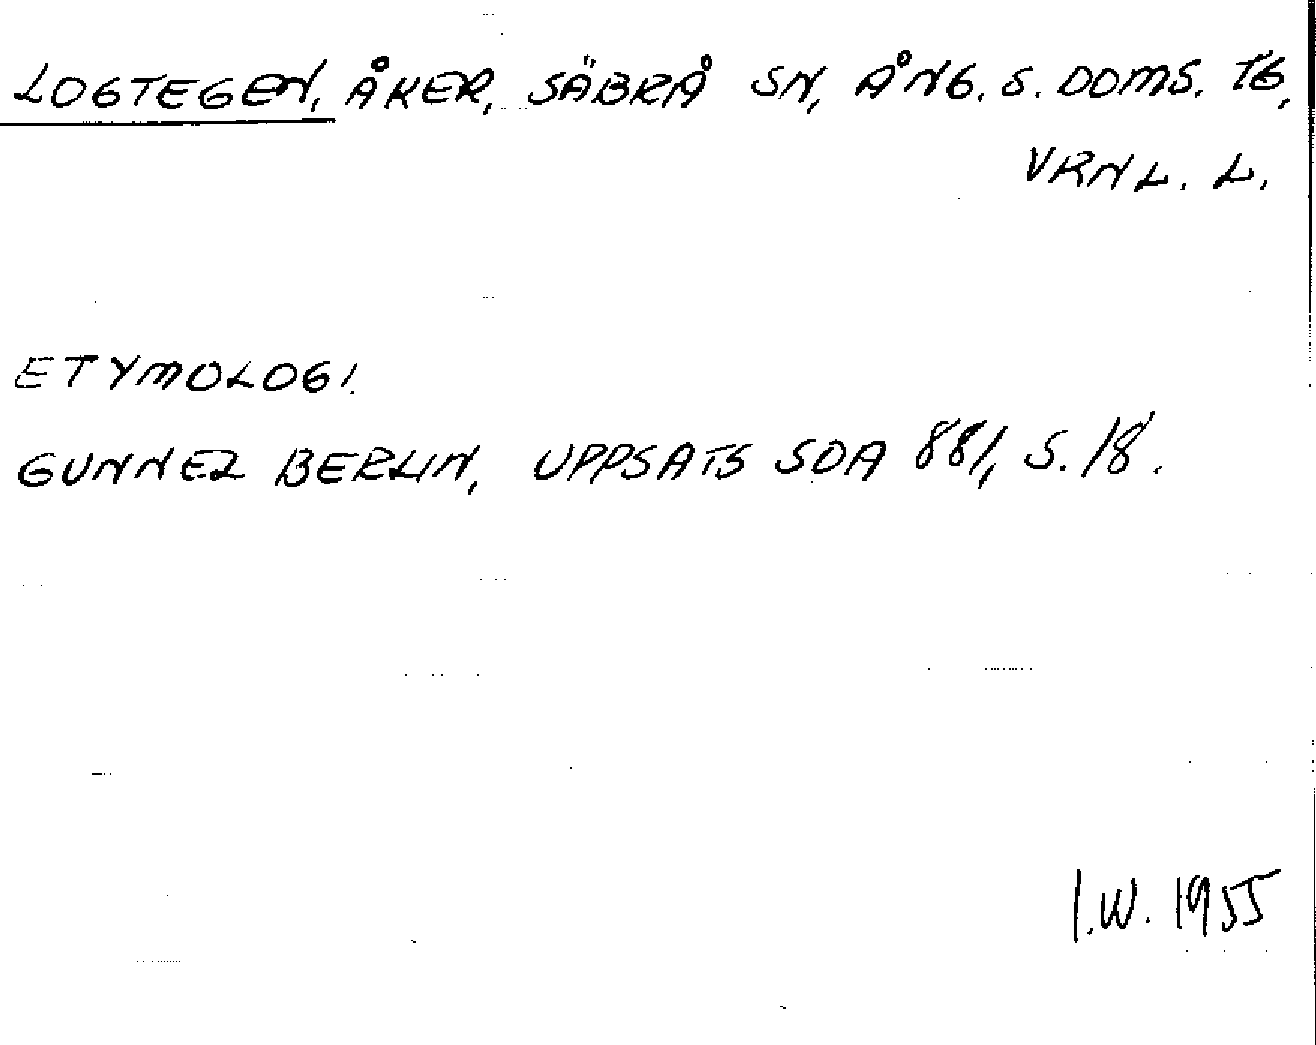 LOGTEGEN, ÅKER, SÄBRÅ SN, ÅNG. S. DOMS. TG,
VRNL. L.
ETYMOLOGI.
GUNNEL BERLIN, UPPSATS SOA 881, S. 18.
I.W. 1955